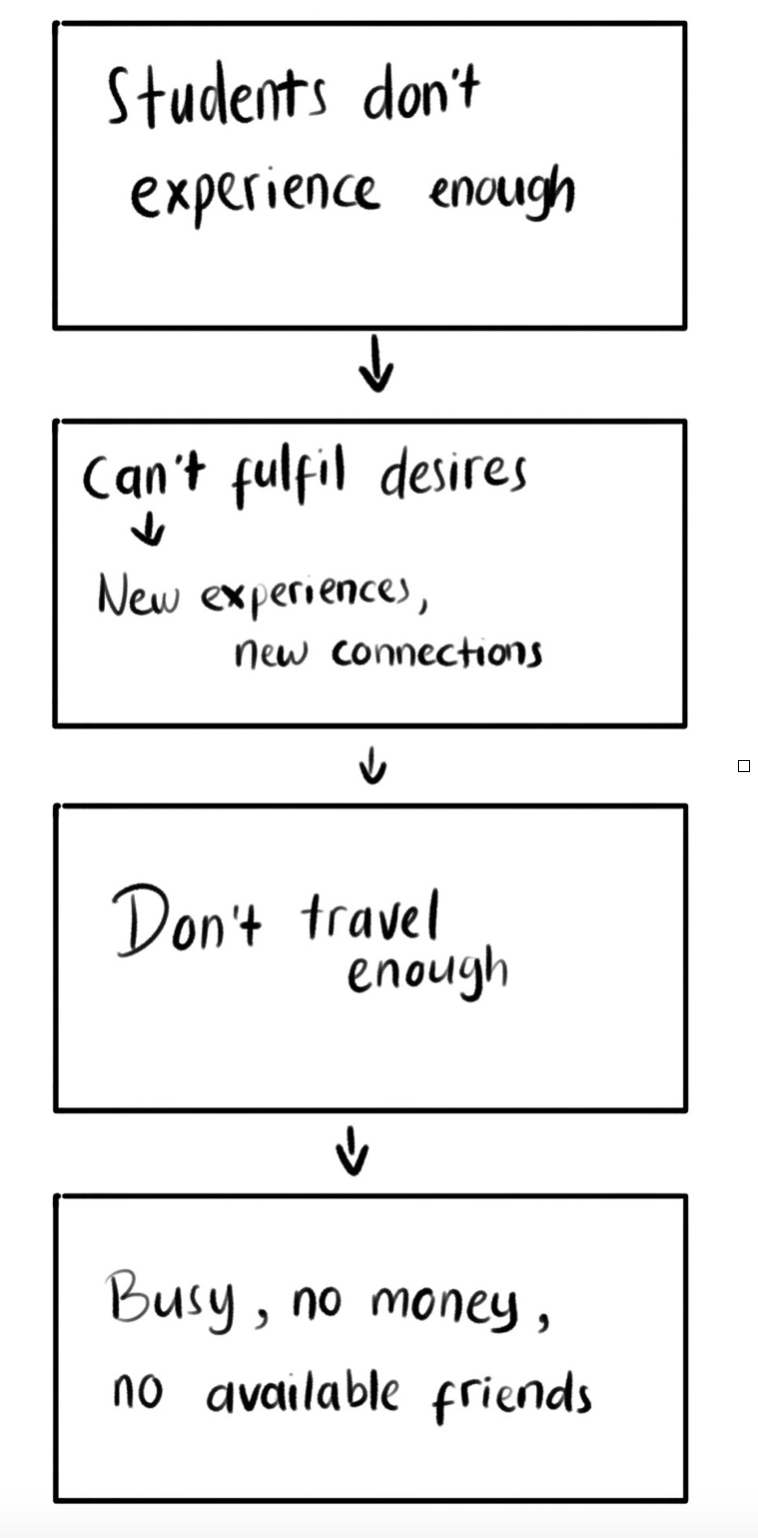 Students don't
experience enough
Can't fulfil desires
New experiences,
new connections
Don't travel
enough
Busy, no money,
no available friends